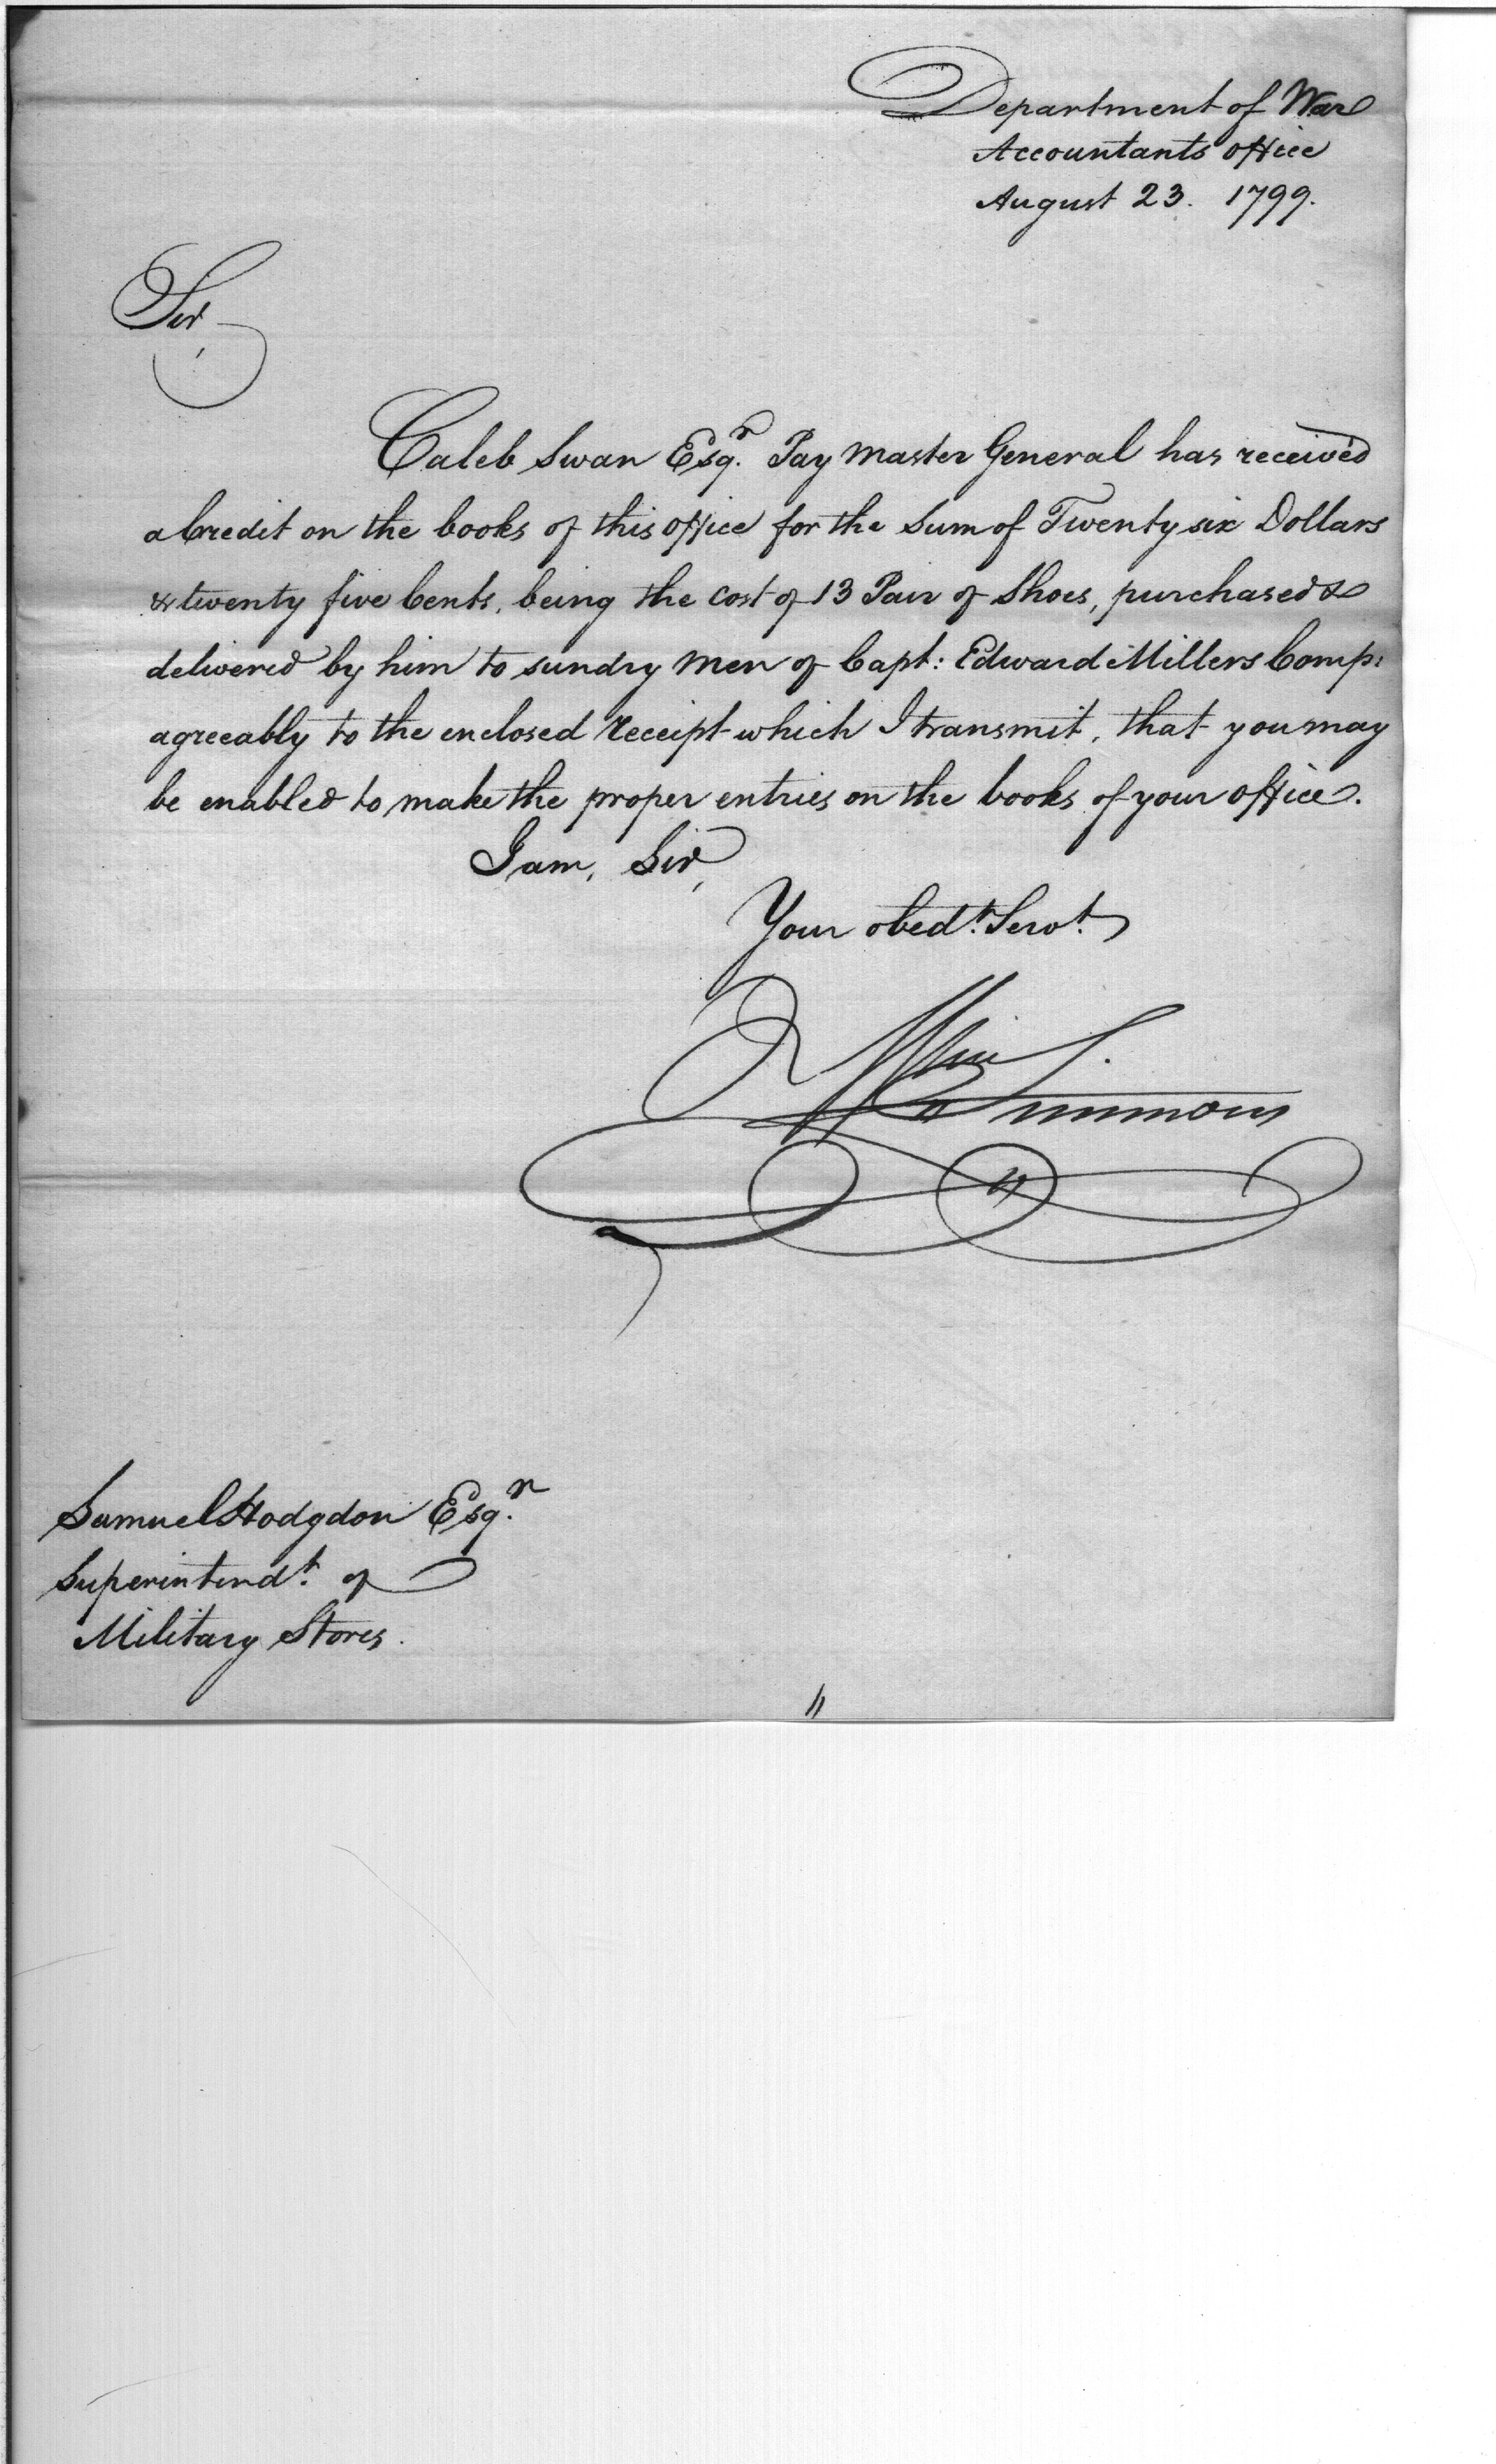 Department of War
Accountants office
August 23. 1799.
Sir,
Caleb Swan Esqr. Pay Master General has received
a Credit on the books of this office for the Sum of Twenty six Dollars
& twenty five Cents, being the cost of 13 Pair of Shoes, purchased &
delivered by him to sundry Men of Capt: Edward Millers Comp:
agreeably to the enclosed receipt which I transmit, that you may
be enabled to make the proper entries on the books of your office.
I am, Sir,
Your obedt. Servt.
Wm Simmons
Samuel Hodgdon Esqr.
Superintendt. of
Military Stores.